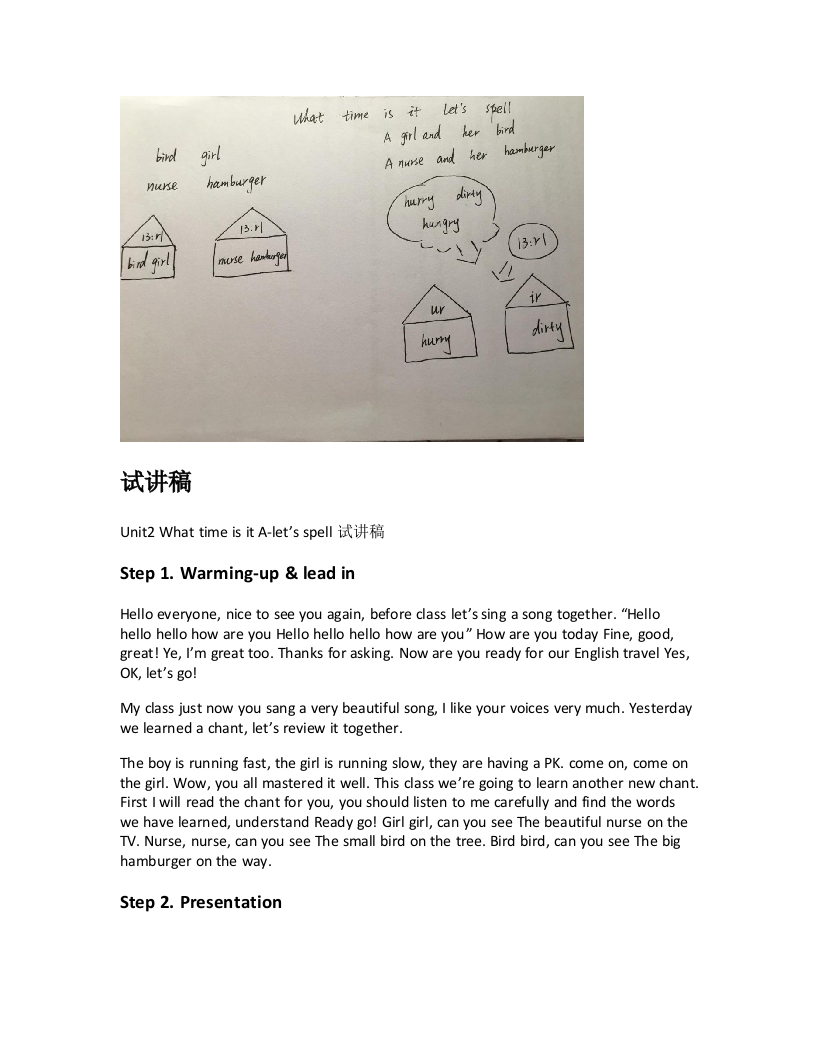 What time is it Let's spell
A girl and her bird
A nurse and her hamburger
bird girl
nurse hamburger
|3:r|
bird girl
|3:r|
nurse hamburger
hurry dirty
hungry
|3:r|
ur
hurry
ir
dirty
试讲稿
Unit2 What time is it A-let’s spell 试讲稿
Step 1. Warming-up & lead in
Hello everyone, nice to see you again, before class let’s sing a song together. “Hello
hello hello how are you Hello hello hello how are you” How are you today Fine, good,
great! Ye, I’m great too. Thanks for asking. Now are you ready for our English travel Yes,
OK, let’s go!
My class just now you sang a very beautiful song, I like your voices very much. Yesterday
we learned a chant, let’s review it together.
The boy is running fast, the girl is running slow, they are having a PK. come on, come on
the girl. Wow, you all mastered it well. This class we’re going to learn another new chant.
First I will read the chant for you, you should listen to me carefully and find the words
we have learned, understand Ready go! Girl girl, can you see The beautiful nurse on the
TV. Nurse, nurse, can you see The small bird on the tree. Bird bird, can you see The big
hamburger on the way.
Step 2. Presentation